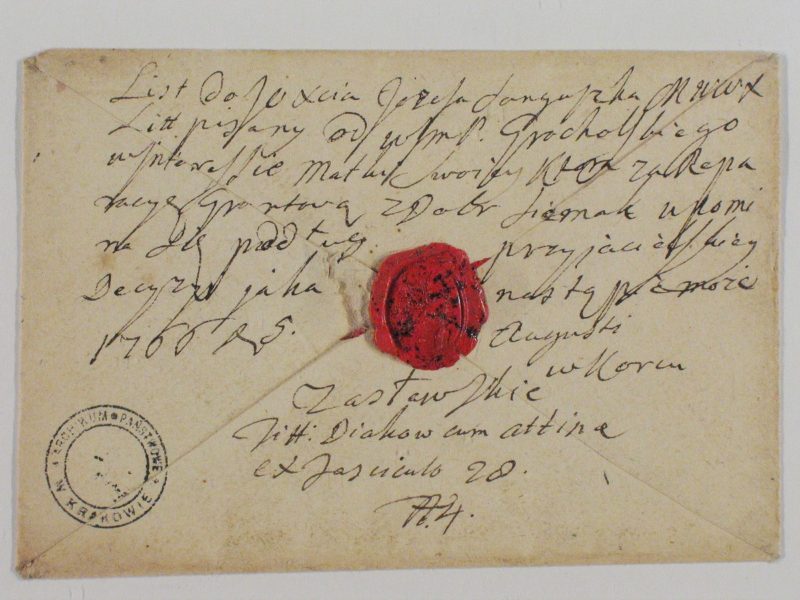 List do JO Xcia Jozefa Sanguszka MWWX
Litt pisany od WImP. Grocholskiego
w Interessie Matki Swoiey Ktora za Repa
racyę Gruntową z Dobr Siemak upomi
na się podług przyjacielskiey
Decyzyi jaka nastąpić może
1766 25. Augusti
w Korcu
Zasławskie
Titt: Diakow cum attine
ex Fasciculo 28.
№ 4.
ARCHIWUM PAŃSTWOWE
W KRAKOWIE